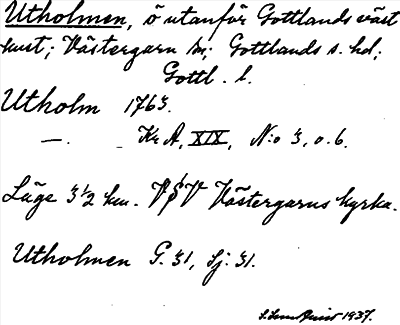 Utholmen, ö utanför Gottlands väst
kust; Västergarn sn; Gottlands s. hd;
Gottl. l.
Utholm 1763.
—. - Kr A, XIX, N:o 3, o. 6.
Läge 3 1/2 km. VSV Västergarns kyrka.
Utholmen G. 31, Sj. 31.
1937.